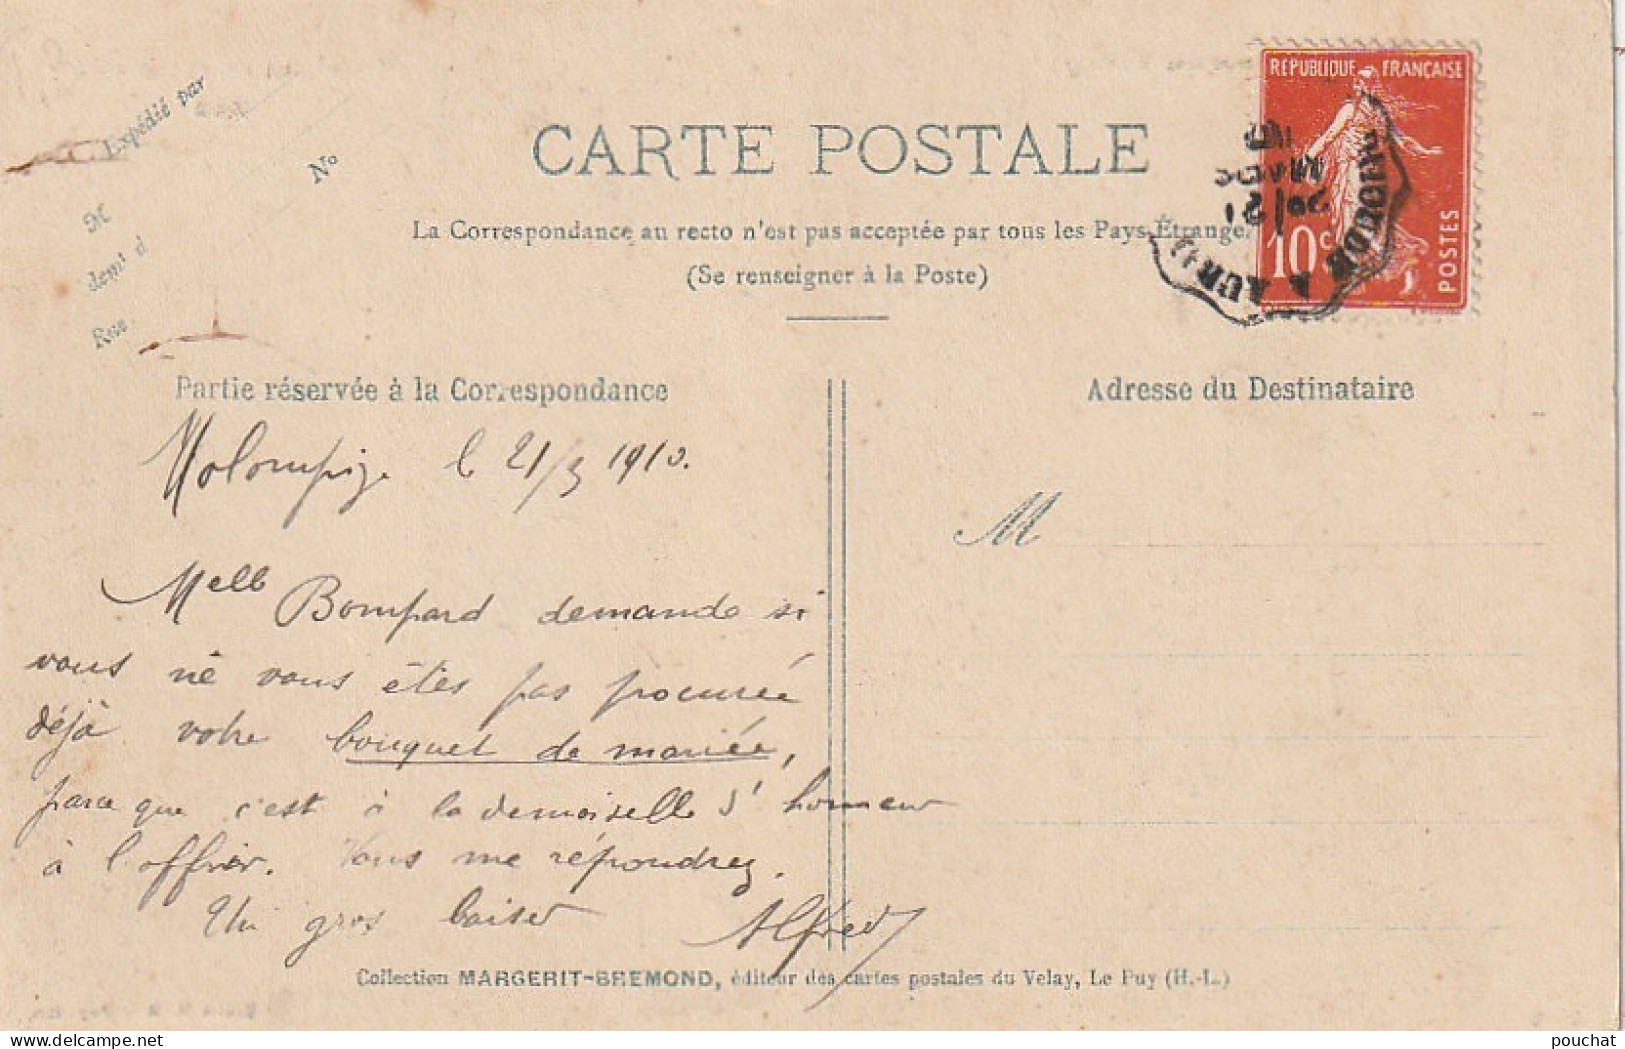 Expédié par
M
demt d
Rue
No
CARTE POSTALE
La Correspondance au recto n'est pas acceptée par tous les Pays Étrange
(Se renseigner à la Poste)
REPUBLIQUE FRANÇAISE
10 c
POSTES
Partie réservée à la Correspondance
Adresse du Destinataire
M
Molompize le 21/3 1910.
Melle Bompard demande si
vous ne vous êtes pas procurée
déjà votre bouquet de mariée,
parce que c'est à la demoiselle d'honneur
à l'offrir. Vous me répondrez.
Un gros baiser Alfred
Collection MARGERIT-BREMOND, éditeur des cartes postales du Velay, Le Puy (H.-L.)
pouchat